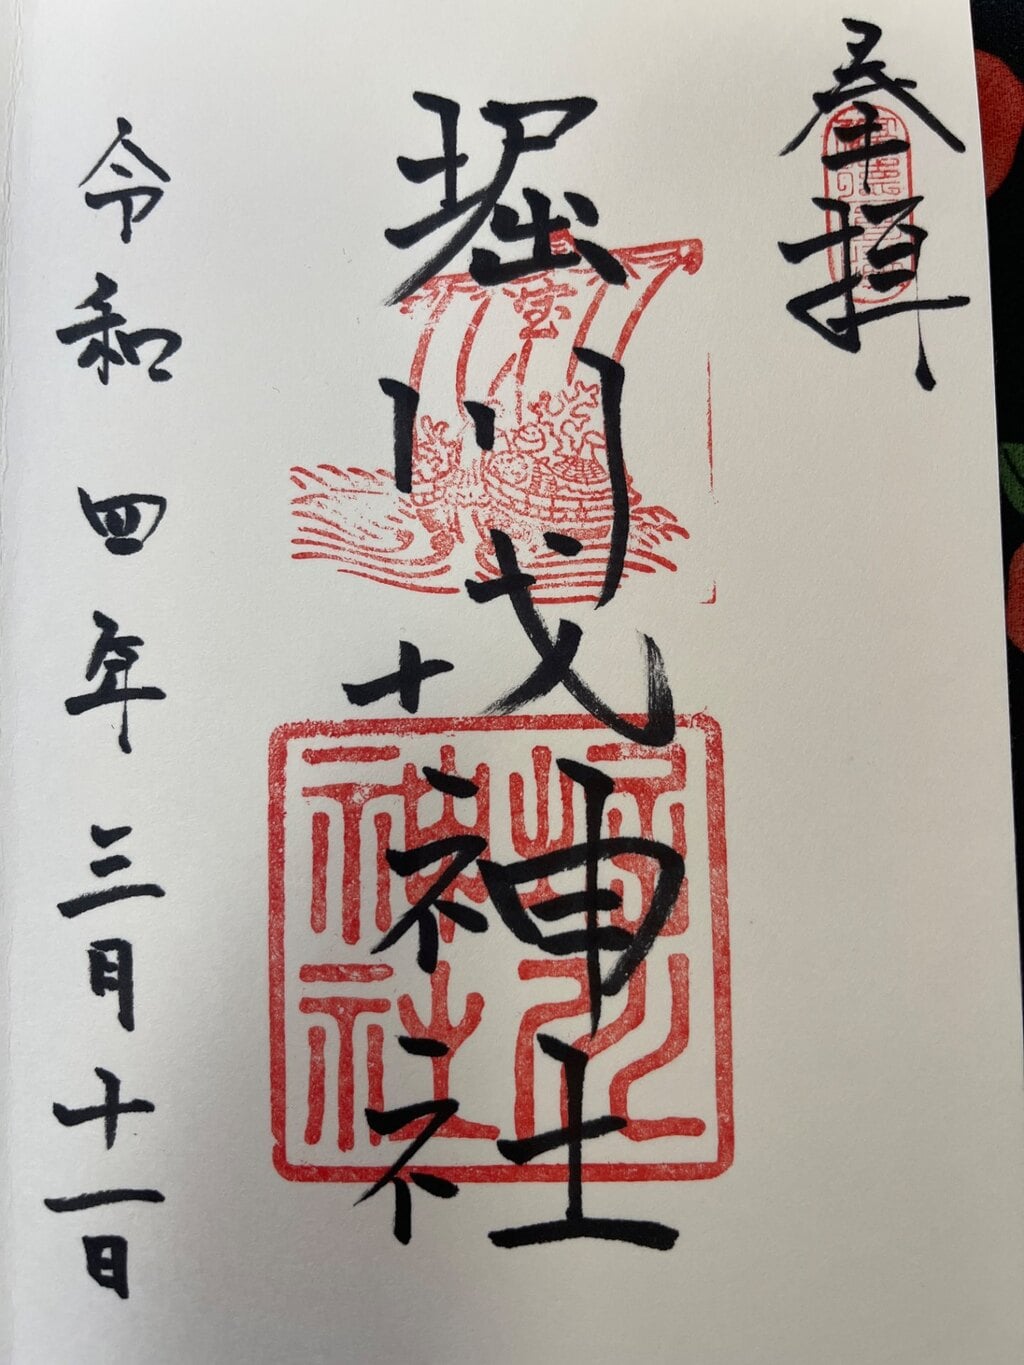 奉拝
堀川戎神社
宝
堀川
神社
令和四年三月十一日